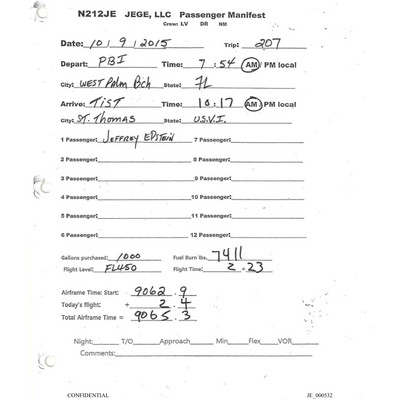 N212JE JEGE, LLC Passenger Manifest
Crew: LV DR NM
Date: 10/9/2015 Trip: 207
Depart: PBI Time: 7:54 AM/PM local
City: WEST PALM BCH State: FL
Arrive: TIST Time: 10:17 AM/PM local
City: ST. THOMAS State: U.S.V.I.
1 Passenger: JEFFREY EPSTEIN 7 Passenger:
2 Passenger: 8 Passenger:
3 Passenger: 9 Passenger:
4 Passenger: 10 Passenger:
5 Passenger: 11 Passenger:
6 Passenger: 12 Passenger:
Gallons purchased: 1000 Fuel Burn lbs. 7411
Flight Level: FL450 Flight Time: 2+23
Airframe Time: Start: 9062.9
Today's flight: + 2.4
Total Airframe Time = 9065.3
Night: T/O Approach Min Flex VOR
Comments:
CONFIDENTIAL JE_000532